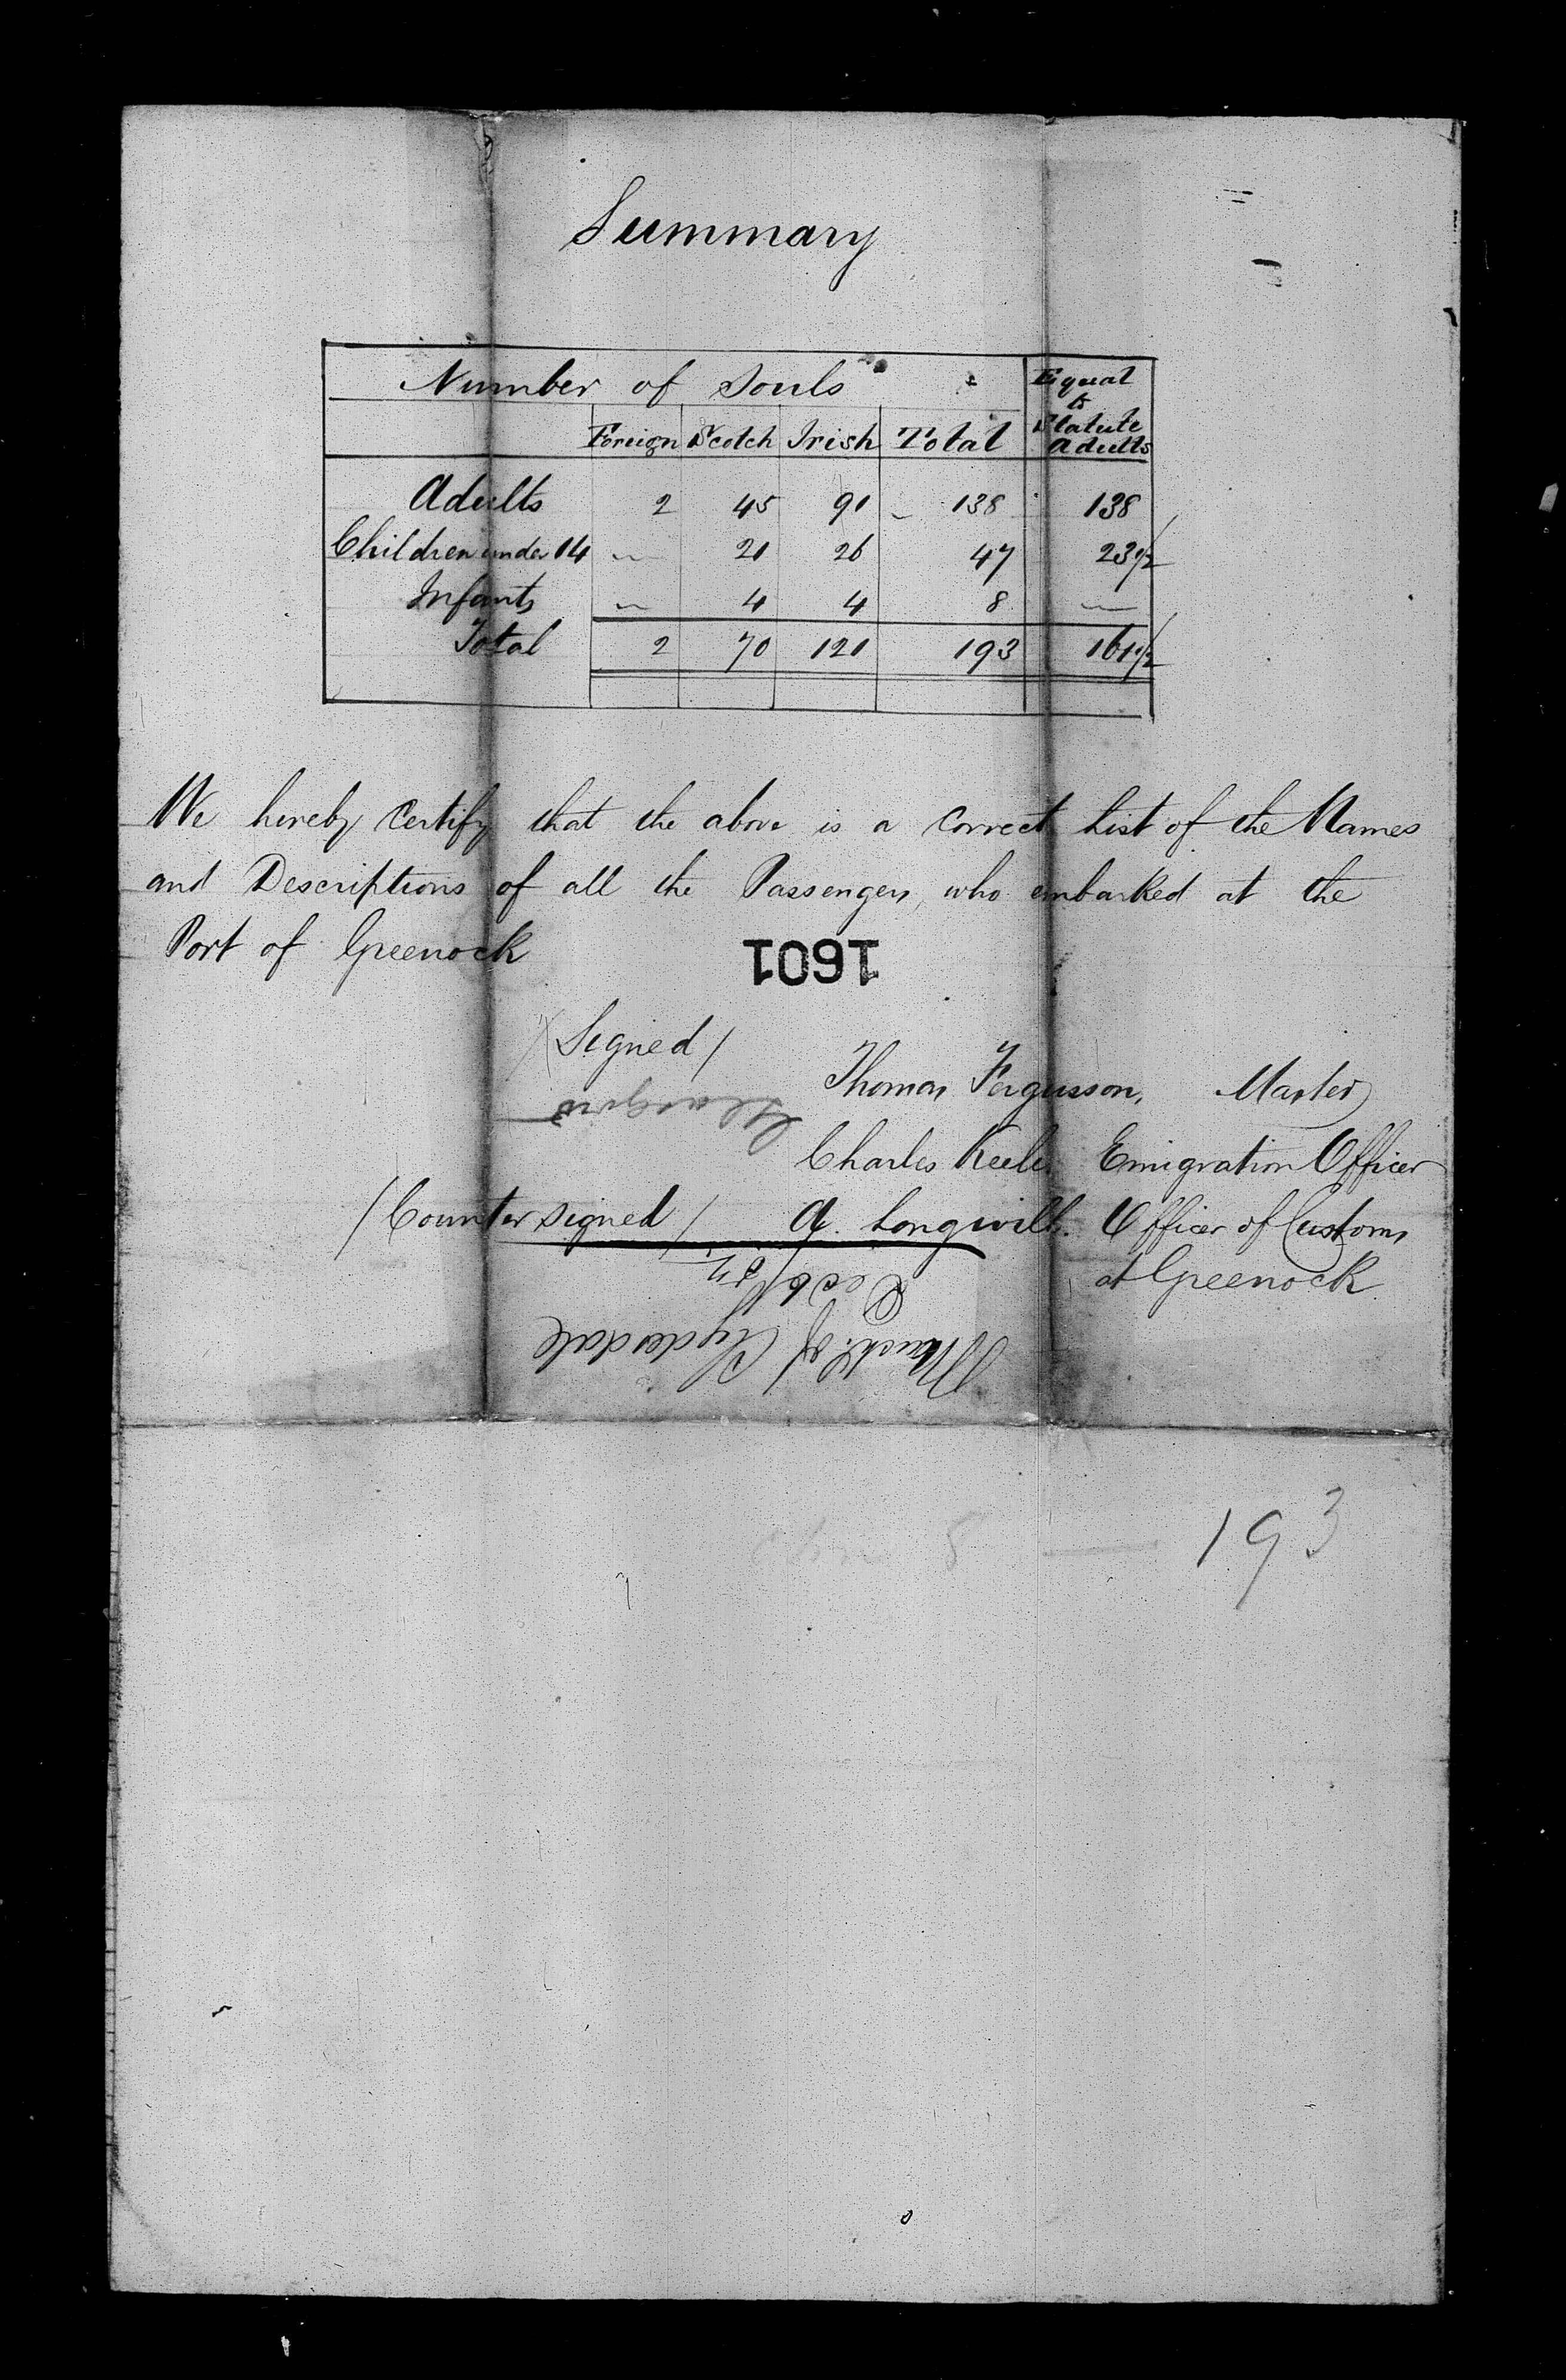 Summary
Number of Souls
Equal to Statute Adults
Foreign Scotch Irish Total
Adults 2 45 91 138 138
Children under 14 — 21 26 47 23 1/2
Infants — 4 4 8 —
Total 2 70 121 193 161 1/2
We hereby Certify that the above is a Correct List of the Names
and Descriptions of all the Passengers, who embarked at the
Port of Greenock
1601
(Signed)
Thomas Fergusson, Master
Glasgow
Charles Keele. Emigration Officer
(Counter signed) A. Longwill. Officer of Customs
at Greenock
March. of Clydesdale
193